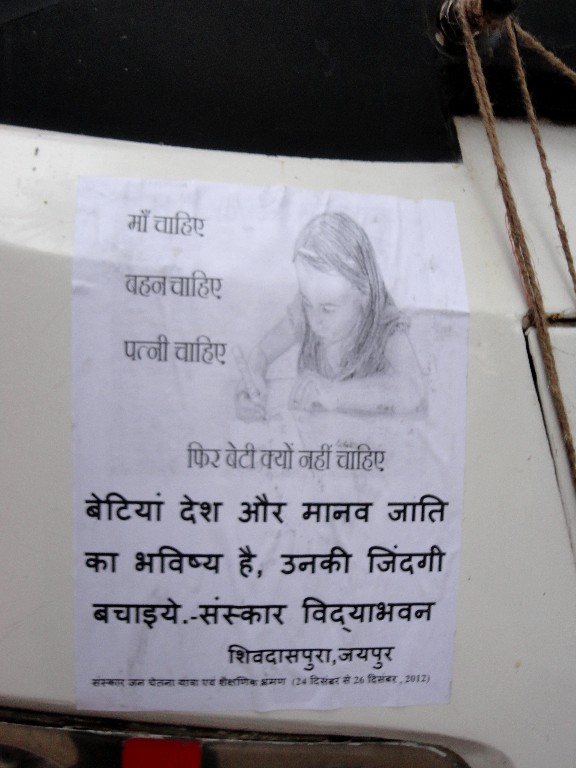 माँ चाहिए
बहन चाहिए
पत्नी चाहिए
फिर बेटी क्यों नहीं चाहिए
बेटियां देश और मानव जाति
का भविष्य है, उनकी जिंदगी
बचाइये.-संस्कार विद्याभवन
शिवदासपुरा,जयपुर
संस्कार जन चेतना यात्रा एवं शैक्षणिक भ्रमण (24 दिसंबर से 26 दिसंबर , 2012)